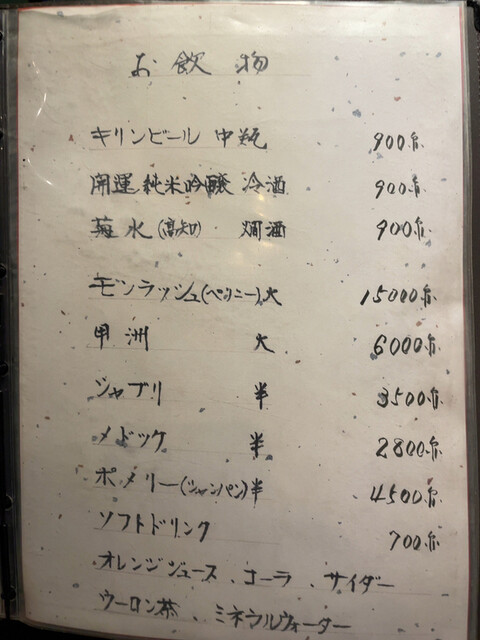 お飲物
キリンビール 中瓶 900円
開運 純米吟醸 冷酒 900円
菊水(高知) 燗酒 900円
モンラッシュ(ペリニー)大 15000円
甲洲 大 6000円
シャブリ 半 3500円
メドック 半 2800円
ポメリー(シャンパン)半 4500円
ソフトドリンク 700円
オレンジジュース、コーラ、サイダー
ウーロン茶、ミネラルウォーター